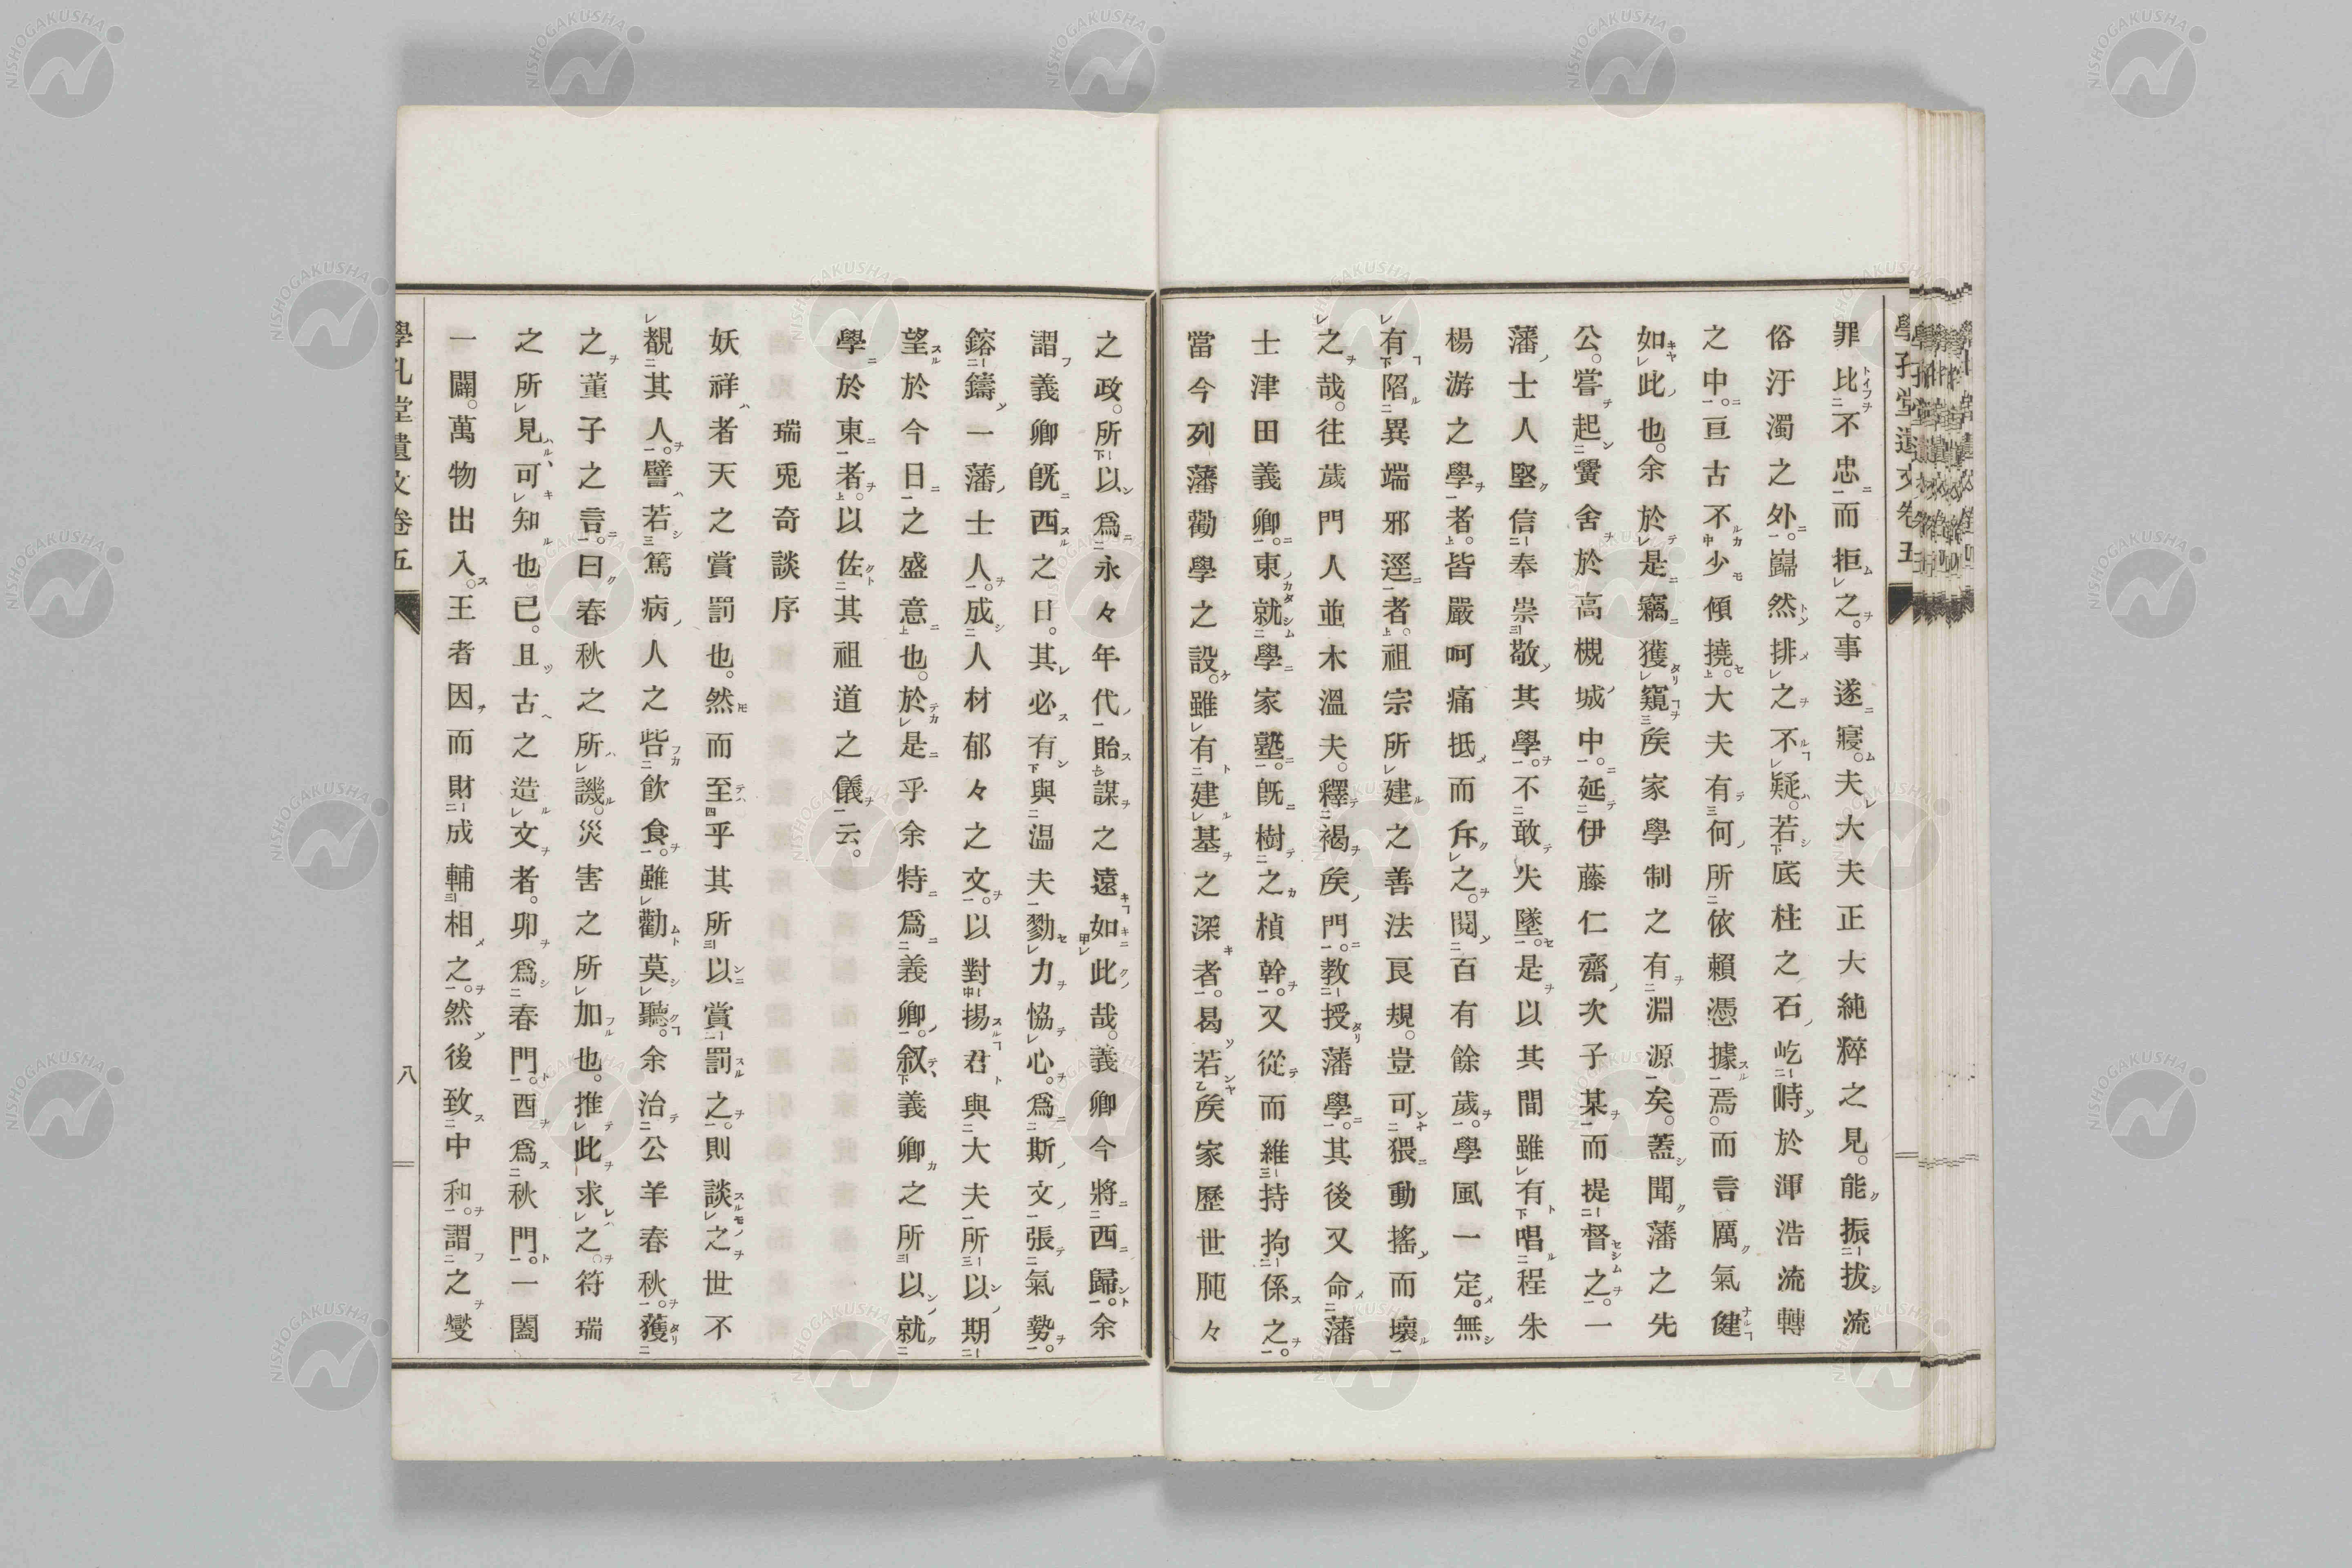 學孔堂遺文卷五
罪比不忠而拒之。事遂寢。夫大夫正大純粹之見。能振拔流
俗汙濁之外。巋然排之不疑。若底柱之石屹峙於渾浩流轉
之中。亘古不少傾撓。大夫有何所依賴憑據焉。而言厲氣健
如此也。余於是竊獲窺矦家學制之有淵源矣。蓋聞藩之先
公。嘗起黌舍於高槻城中。延伊藤仁齋次子某而提督之。一
藩士人堅信奉崇敬其學。不敢失墜。是以其間雖有唱程朱
楊游之學者。皆嚴呵痛抵而斥之。閱百有餘歲。學風一定。無
有陷異端邪逕者。祖宗所建之善法良規。豈可猥動搖而壞
之哉。往歲門人並木溫夫。釋褐矦門。教授藩學。其後又命藩
士津田義卿。東就學家塾。既樹之楨幹。又從而維持拘係之。
當今列藩勸學之設。雖有建基之深者。曷若矦家歷世肫々
之政。所以爲永々年代貽謀之遠如此哉。義卿今將西歸。余
謂義卿既西之日。其必有與温夫勠力恊心。爲斯文張氣勢。
鎔鑄一藩士人。成人材郁々之文。以對揚君與大夫所以期
望於今日之盛意也。於是乎余特爲義卿。叙義卿之所以就
學於東者。以佐其祖道之儀云。
瑞兎奇談序
妖祥者天之賞罰也。然而至乎其所以賞罰之。則談之世不
覩其人。譬若篤病人之呰飲食。雖勸莫聽。余治公羊春秋。獲
之董子之言。曰春秋之所譏。災害之所加也。推此求之。符瑞
之所見。可知也已。且古之造文者。卯爲春門。酉爲秋門。一闔
一闢。萬物出入。王者因而財成輔相之。然後致中和。謂之變
學孔堂遺文卷五
八
NISHOGAKUSHA